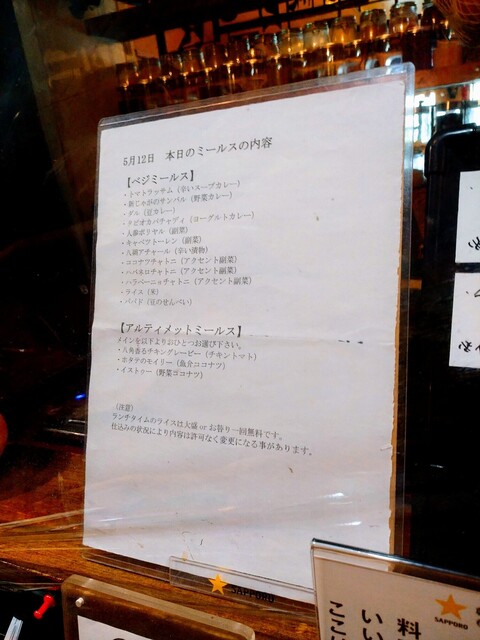 5月12日　本日のミールスの内容
【ベジミールス】
・トマトラッサム（辛いスープカレー）
・新じゃがのサンバル（野菜カレー）
・ダル（豆カレー）
・タピオカパチャディ（ヨーグルトカレー）
・人参ポリヤル（副菜）
・キャベツトーレン（副菜）
・八朔アチャール（辛い漬物）
・ココナツチャトニ（アクセント副菜）
・ハバネロチャトニ（アクセント副菜）
・ハラペーニョチャトニ（アクセント副菜）
・ライス（米）
・パパド（豆のせんべい）
【アルティメットミールス】
メインを以下よりおひとつお選び下さい。
・八角香るチキングレービー（チキントマト）
・ホタテのモイリー（魚介ココナツ）
・イストゥー（野菜ココナツ）
（注意）
ランチタイムのライスは大盛 or お替り一回無料です。
仕込みの状況により内容は許可なく変更になる事があります。
SAPPORO
SAPPORO
料
いい
ここに